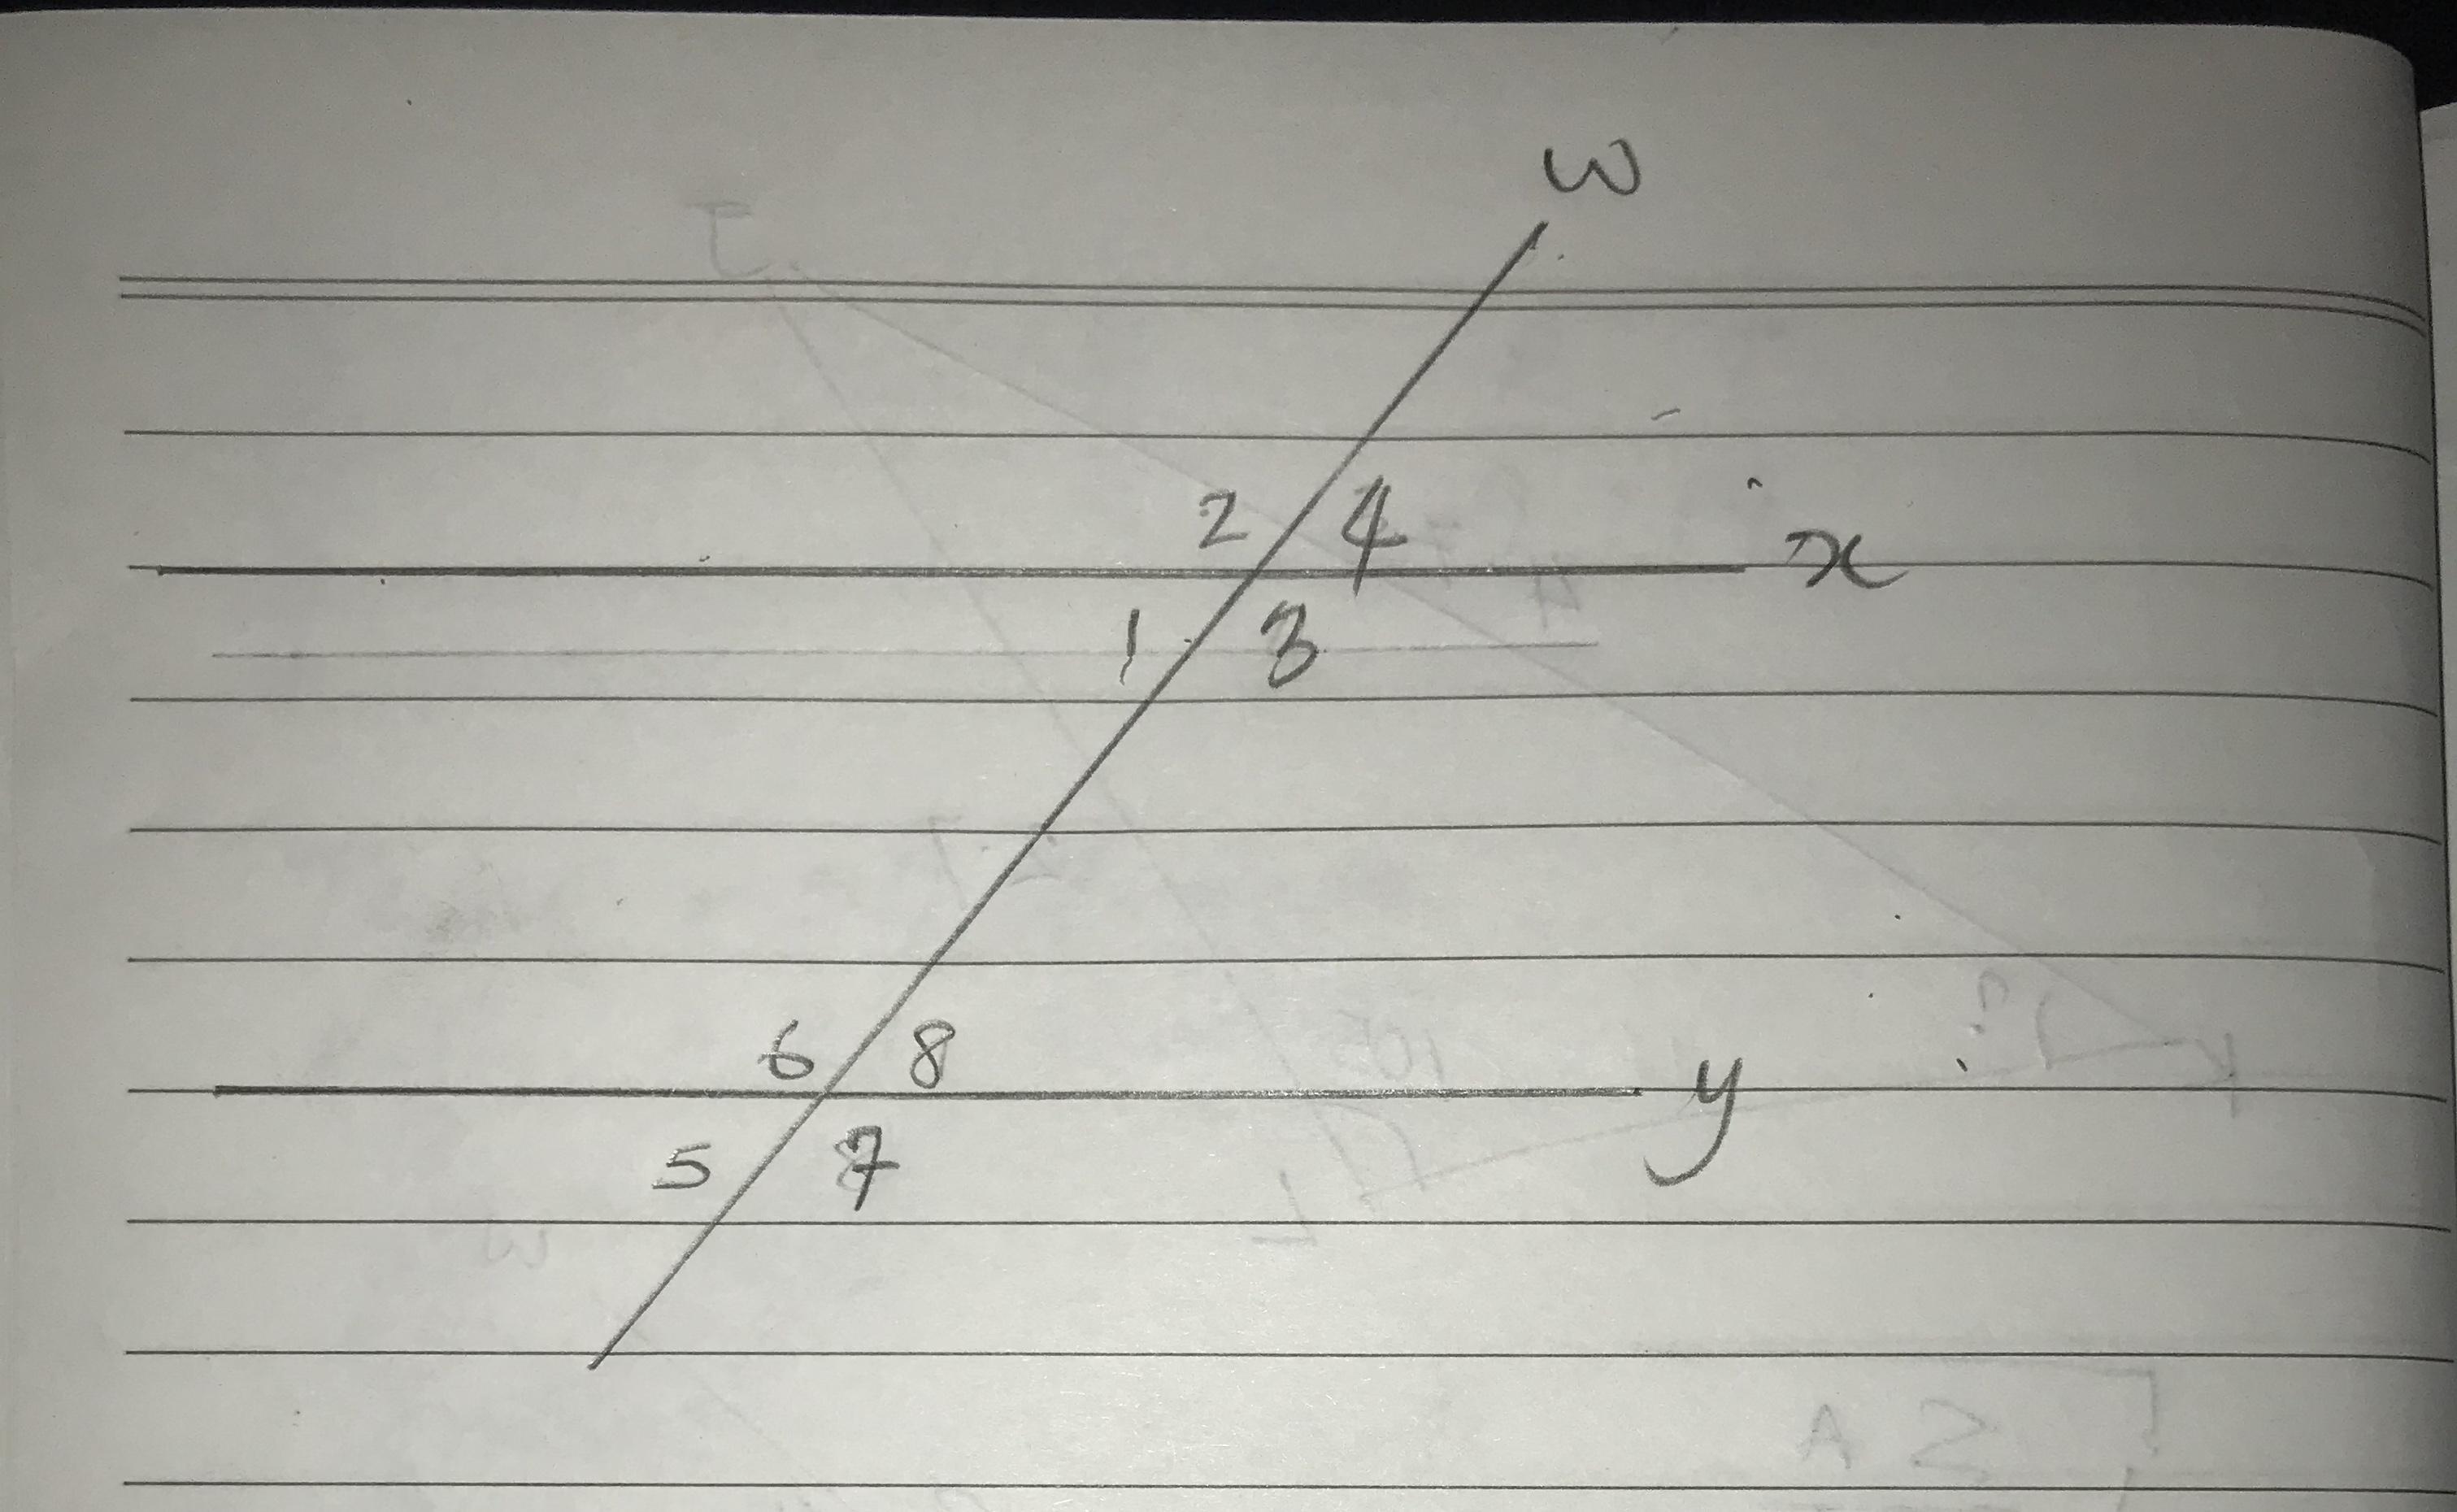 w
2 4
x
1 3
6 8
y
5 7